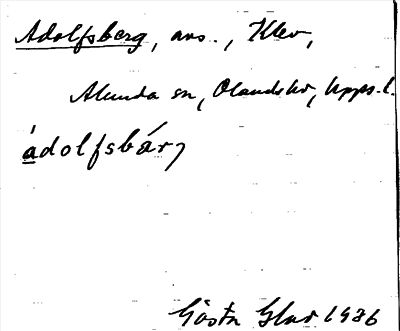 Adolfsberg, avs., Klev,
Alunda sn, Olandshr, Upps. l.
ádolfsbárj
Gösta                                  1936